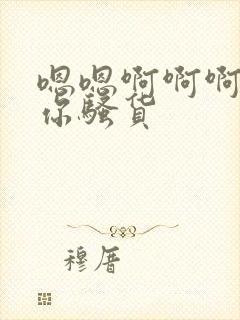 嗯嗯啊啊啊
你骚货
穆厝